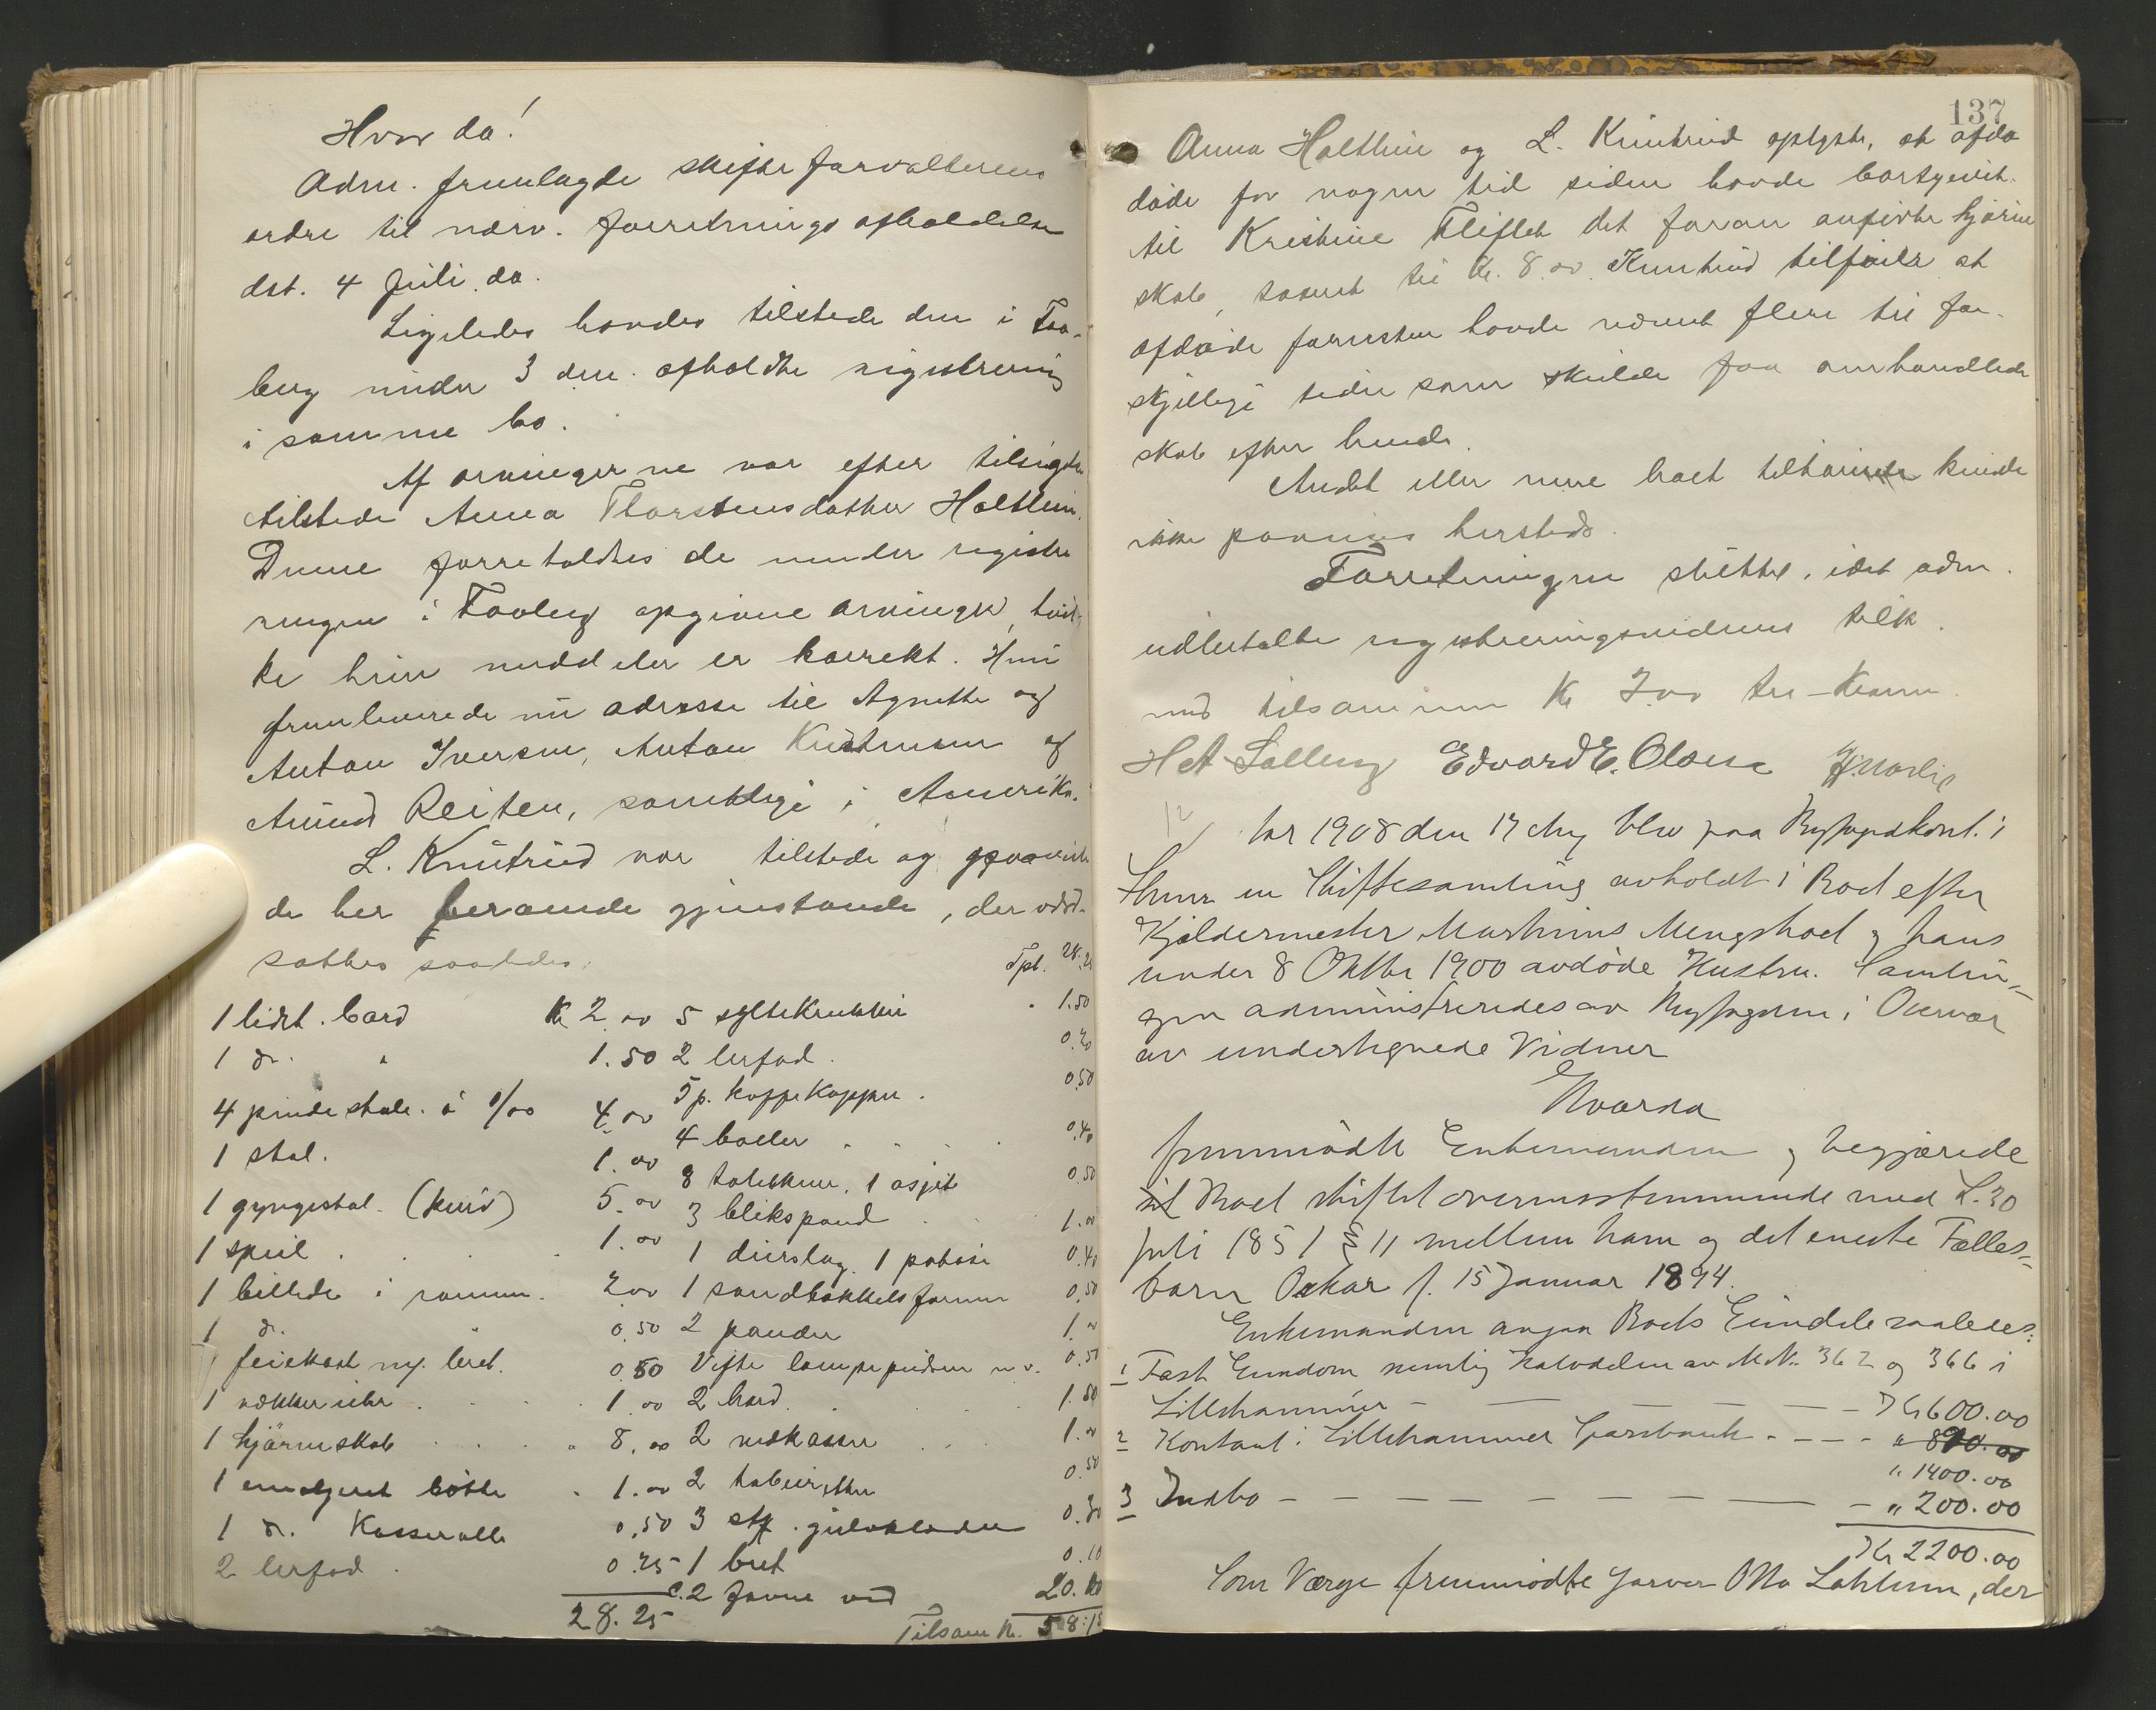 Hvor da!
Adm. fremlagde skifteforvalterens
ordre til nærv. forretnings afholdelse
dat. 4 Juli da.
Ligeledes havdes tilstede den i Faa-
berg under 3 dne. afholdte registrering
i samme bo.
Af arvingerne var efter tilsigelse
tilstede Anna Thorstensdatter Holthein.
Denne foreholdtes de under registre
ringen i Faaberg opgivne arvinger, hvil-
ke hun meddeler er korrekt. Hun
fremleverede nu adresse til Agnethe og
Anton Iversen, Anton Kristensen og
Amund Reiten, samtlige i Amerika.
L. Knutrud var tilstede og paaviste
de her beroende gjenstande, der værd-
sattes saaledes:
Tpt. 28.25
1 lidet bord Kr 2.00 5 syltekrukker 1.50
1 do. " 1.50 2 lerfad. 0.20
4 pindestole á 1/00 4.00 5 p. kaffekopper. 0.50
1 stol. 1.00 4 boller 0.40
1 gyngestol. (kurv) 5.00 8 talerkner, 1 asjet 0.50
1 speil 1.00 3 blikspand 1.00
1 billede i ramme. 2.00 1 dørslag 1 0.40
1 do. 0.50 1 sandbakkelsformer 0.50
feiekost og bret. 0.50 2 pander 1.00
1 vækkeruhr 1.00 Vifte lampe m.v. 0.50
1 hjørneskab 8.00 2 bord. 1.50
1 emaljeret bøtte 1.00 2 vedkasser 1.00
1 do. Kasserolle 0.50 2 taburetter 0.50
2 lerfad 0.25 3 stk. gulvklæder 0.30
28.25 1 bret 0.10
c. 2 favne ved 20.00
Tilsam Kr. 58.15
137
Anna Holthein og L. Knutrud oplyste, at afdø
døde for nogen tid siden havde bortgivit
til Kristine Fliflet det foran anførte hjørne
skab, taxeret til Kr. 8.00. Knutrud tilføier at
afdøde forresten havde nævnt flere til for-
skjellige tider som skulde faa omhandlede
skab efter hende.
Andet eller mere boet tilhørende kunde
ikke paavises hersteds.
Forretningen sluttet, idet adm.
udbetalte registreringsvidnerne tilk.
med tilsammen Kr 2.00 to Kroner.
H A Salberg Edvard E. Olsen
Aar 1908 den 17 Aug blev paa Byfogdkont. i
Lhmr en Skiftesamling avholdt i Boet efter
Kjeldermester Martinus Mengshoel og hans
under 8 Oktbr 1900 avdöde Hustru. Samlin-
gen administreredes av Byfogden i Overvær
av undertegnede Vidner
Hvorda
fremmödte Enkemanden og begjærede
Boet skiftet overensstemmende med L. 30
Juli 1851 § 11 mellem ham og det eneste Fælles-
barn Oskar f. 15 Januar 1894.
Enkemanden angav Boets Eiendele saaledes:
1 Fast Eiendom nemlig Halvdelen av M.N. 362 og 366 i
Lillehammer Kr 600.00
2 Kontant i Lillehammer Sparebank " 800.00
" 1400.00
3 Indbo " 200.00
Kr 2200.00
Som Værge fremmödte Garver Otto Lahlum, der